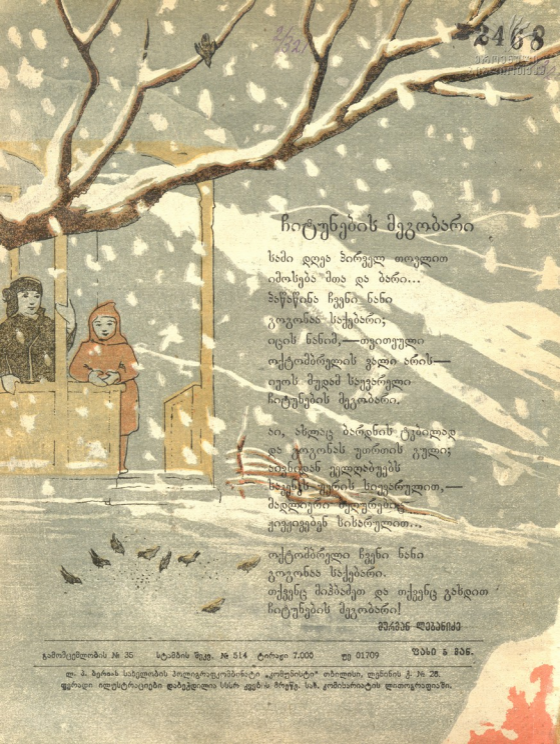 2468
ჩიტუნების მეგობარი
სამი დღეა პირველ თოვლით
იმოსება მთა და ბარი...
პაწაწინა ჩვენი ნანი
გოგონაა საქებარი;
იცის ნანიმ,—თვითეული
ოქტომბრელის ვალი არის—
იყოს მუდამ საყვარელი
ჩიტუნების მეგობარი.
აი, ახლაც ბარდნის ტკბილად
და გოგონას უთრთის გული;
აივნიდან ყელღაბუებს
საკენკს უყრის სიყვარულით,—
მადლიერი ბეღურები
ჟივჟივებენ სიხარულით...
ოქტომბრელი ჩვენი ნანი
გოგონაა საქებარი.
თქვენც მიჰბაძეთ და თქვენც გახდით
ჩიტუნების მეგობარი!
მურმან ლებანიძე
გამომცემლობის № 35 სტამბის შეკვ. № 514 ტირაჟი 7.000 უე 01709 ფასი 5 მან.
ლ. პ. ბერიას სახელობის პოლიგრაფკომბინატი „კომუნისტი“ თბილისი, ლენინის ქ. № 28.
ფერადი ილუსტრაციები დაბეჭდილია სსსრ კვების მრეწვ. სახ. კომისარიატის ლითოგრაფიაში.